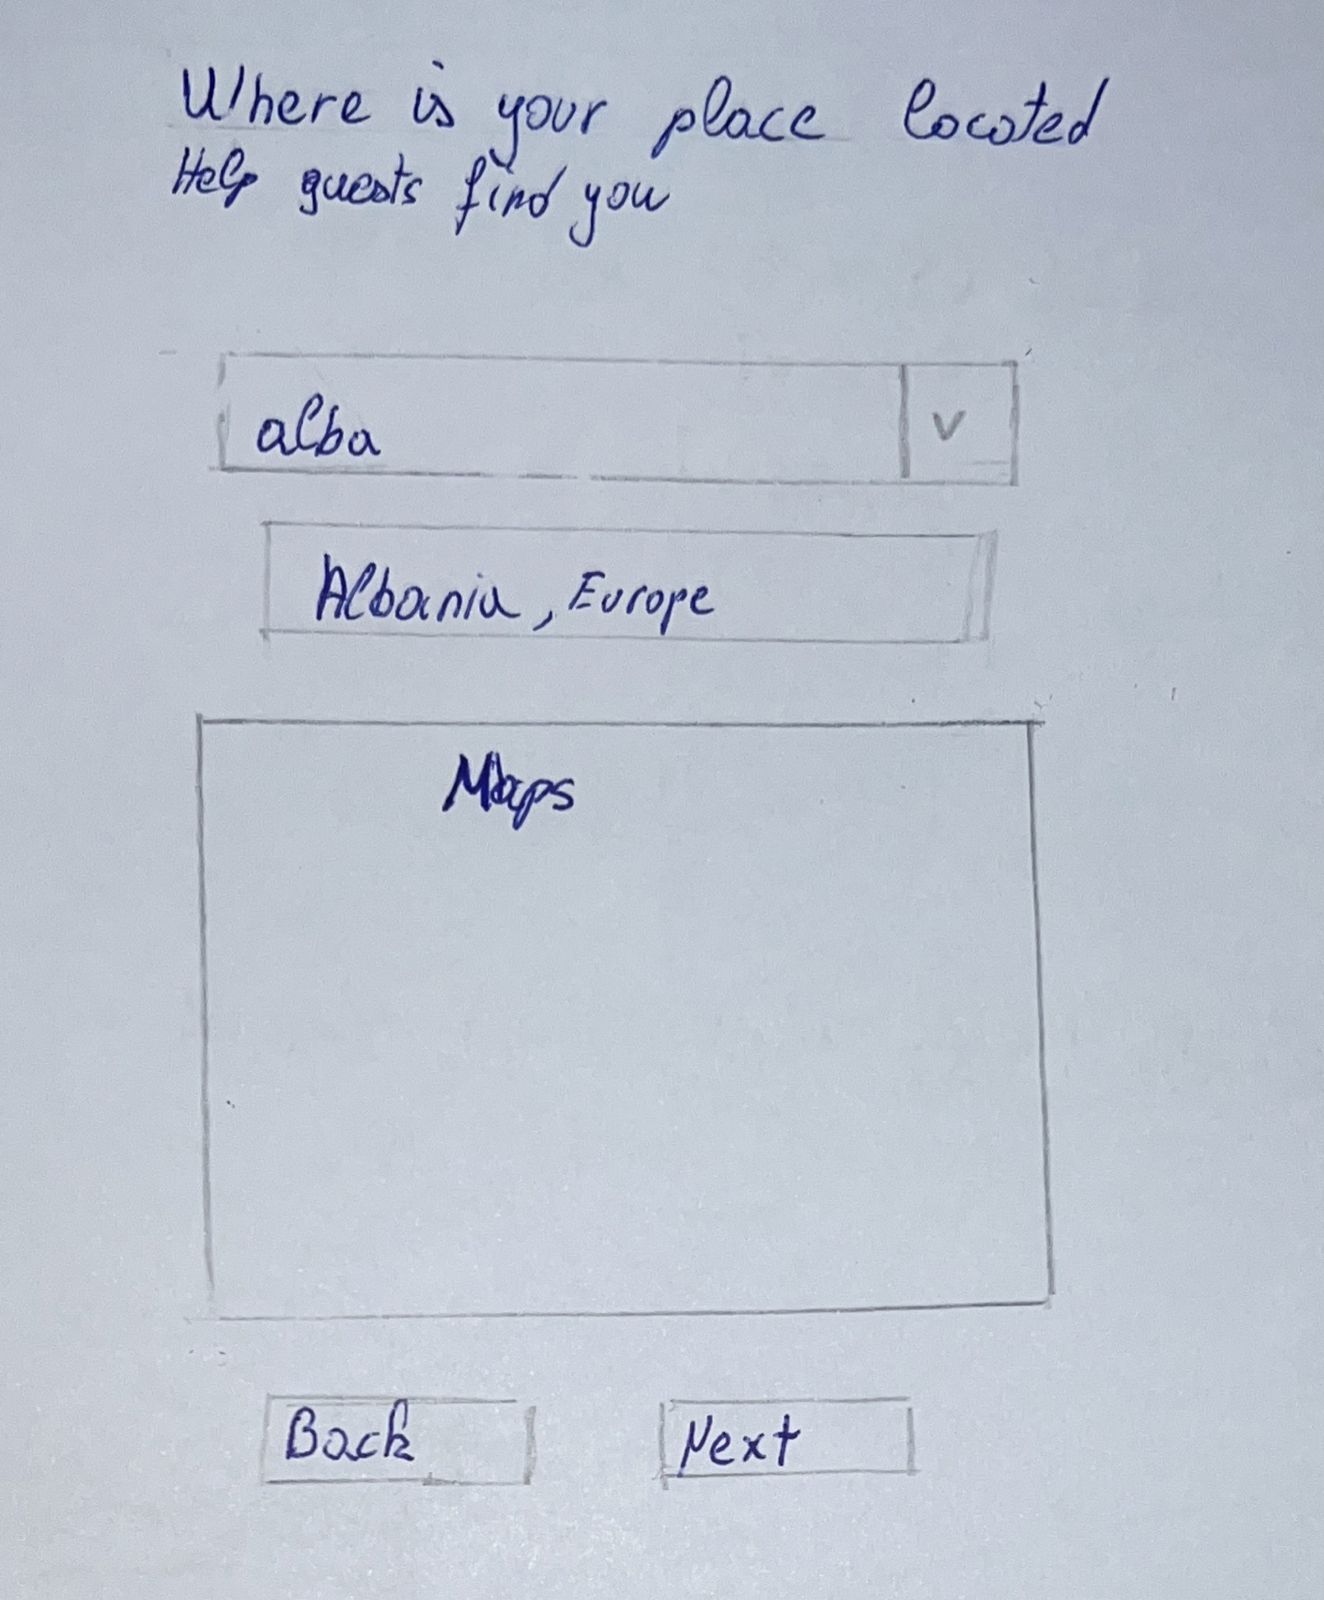 Where is your place located
Help guests find you
alba
v
Albania, Europe
Maps
Back
Next